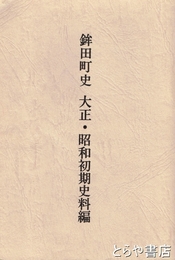 鉾田町史 大正・昭和初期史料編
とらや書店